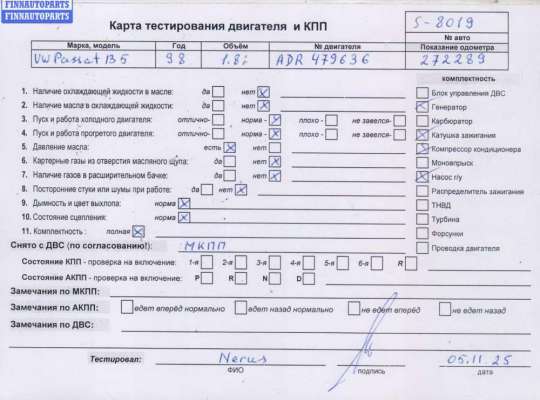 FINNAUTOPARTS
FINNAUTOPARTS
Карта тестирования двигателя и КПП
S-8019
№ авто
Марка, модель Год Объём № двигателя Показание одометра
VW Passat B5 98 1.8i ADR 479636 272289
комплектность
1. Наличие охлаждающей жидкости в масле: да нет
2. Наличие масла в охлаждающей жидкости: да нет
3. Пуск и работа холодного двигателя: отлично- норма - плохо - не завелся-
4. Пуск и работа прогретого двигателя: отлично- норма - плохо - не завелся-
5. Давление масла: есть нет
6. Картерные газы из отверстия масляного щупа: да нет
7. Наличие газов в расширительном бачке: да нет
8. Посторонние стуки или шумы при работе: да нет
9. Дымность и цвет выхлопа: норма
10. Состояние сцепления: норма
11. Комплектность : полная
Блок управления ДВС
Генератор
Карбюратор
Катушка зажигания
Компрессор кондиционера
Моновпрыск
Насос г/у
Распределитель зажигания
ТНВД
Турбина
Форсунки
Проводка двигателя
Снято с ДВС (по согласованию!): МКПП
Состояние КПП - проверка на включение: 1-я 2-я 3-я 4-я 5-я 6-я R
Состояние АКПП - проверка на включение: P R N D
Замечания по МКПП:
Замечания по АКПП: едет вперёд нормально едет назад нормально не едет вперёд не едет назад
Замечания по ДВС:
Тестировал: Nerus 05.11.25
ФИО подпись дата